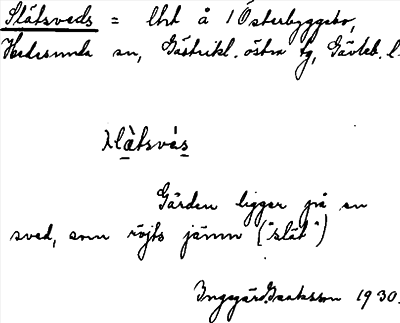 Slätsveds = lht å 1 Österbyggebo,
Hedesunda sn, Gästrikl. östra tg, Gävleb. l.
slä̀tsvés
Gården ligger på en
sved, som röjts jämn ("slät")
Ingegärd Isaksson 1930.